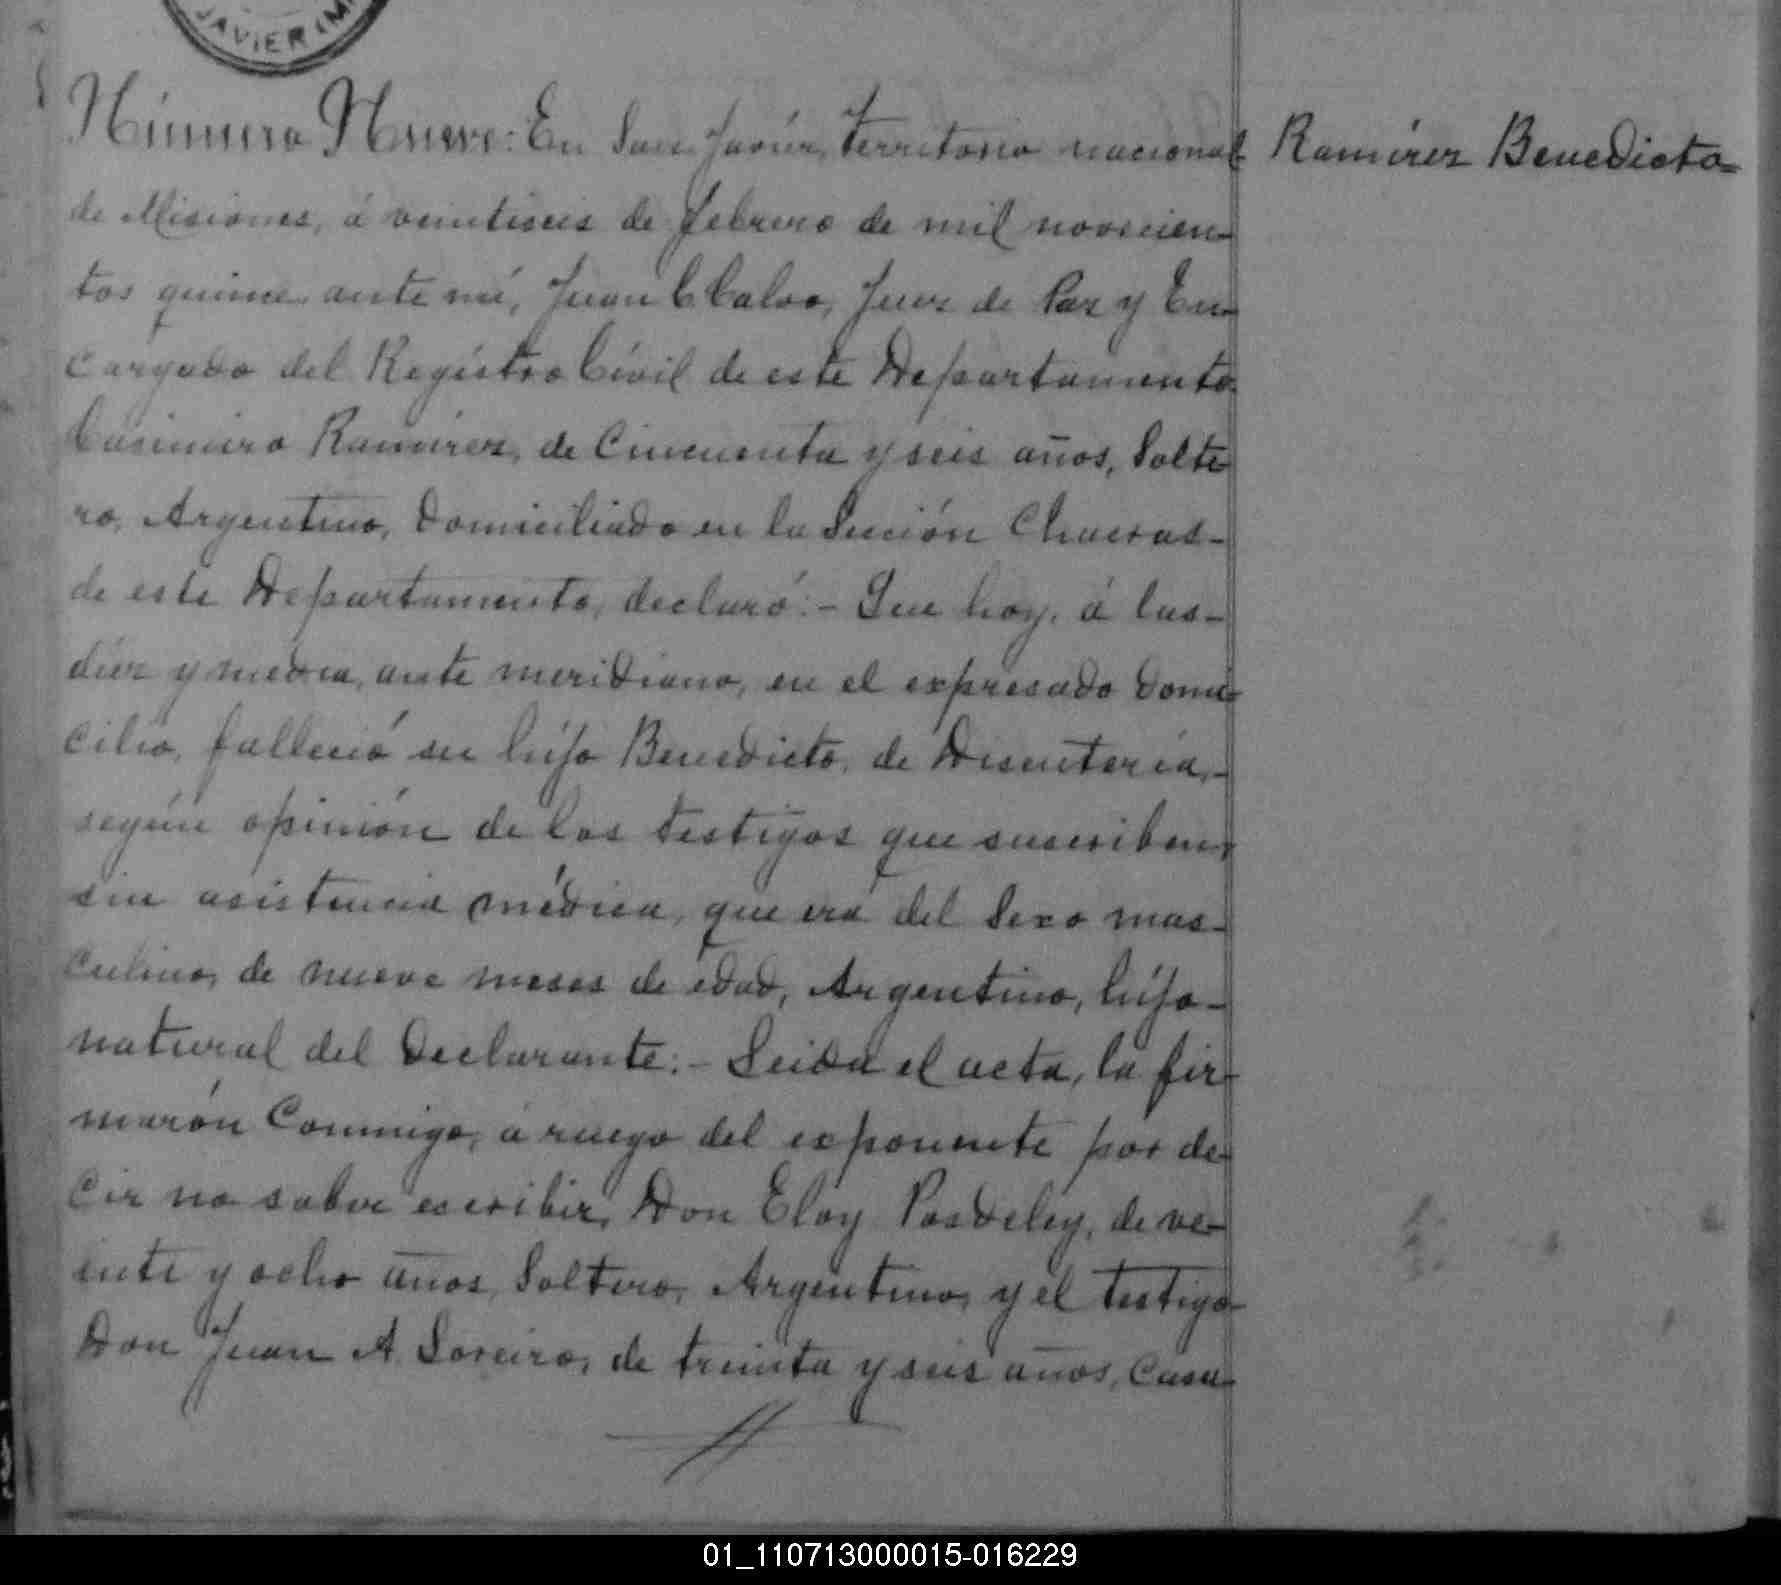 JAVIER (M
Número Nueve: En San Javier, Territorio nacional
Ramírez Benedicto=
de Misiones, á veintiseis de febrero de mil novecien-
tos quince, ante mí, Juan C Calvo, Juez de Paz y En-
cargado del Registro Civil de este Departamento
Casimiro Ramírez, de Cincuenta y seis años, Solte-
ro, Argentino, domiciliado en la Sección Chacras-
de este Departamento, declaró:- Que hoy, á las-
diez y media, ante meridiano, en el expresado domi-
cilio, falleció su hijo Benedicto, de Disentería,-
según opinión de los testigos que suscriben,
sin asistencia médica, que era del Sexo mas-
culino, de nueve meses de edad, Argentino, hijo-
natural del declarante:- Leida el acta, la fir-
marón Conmigo, á ruego del exponente por de-
cir no saber escribir, Don Eloy Posdeley, de ve-
inte y ocho años, Soltero, Argentino, y el testigo
Don Juan A. Loreiro, de treinta y seis años, Casa-
01_110713000015-016229